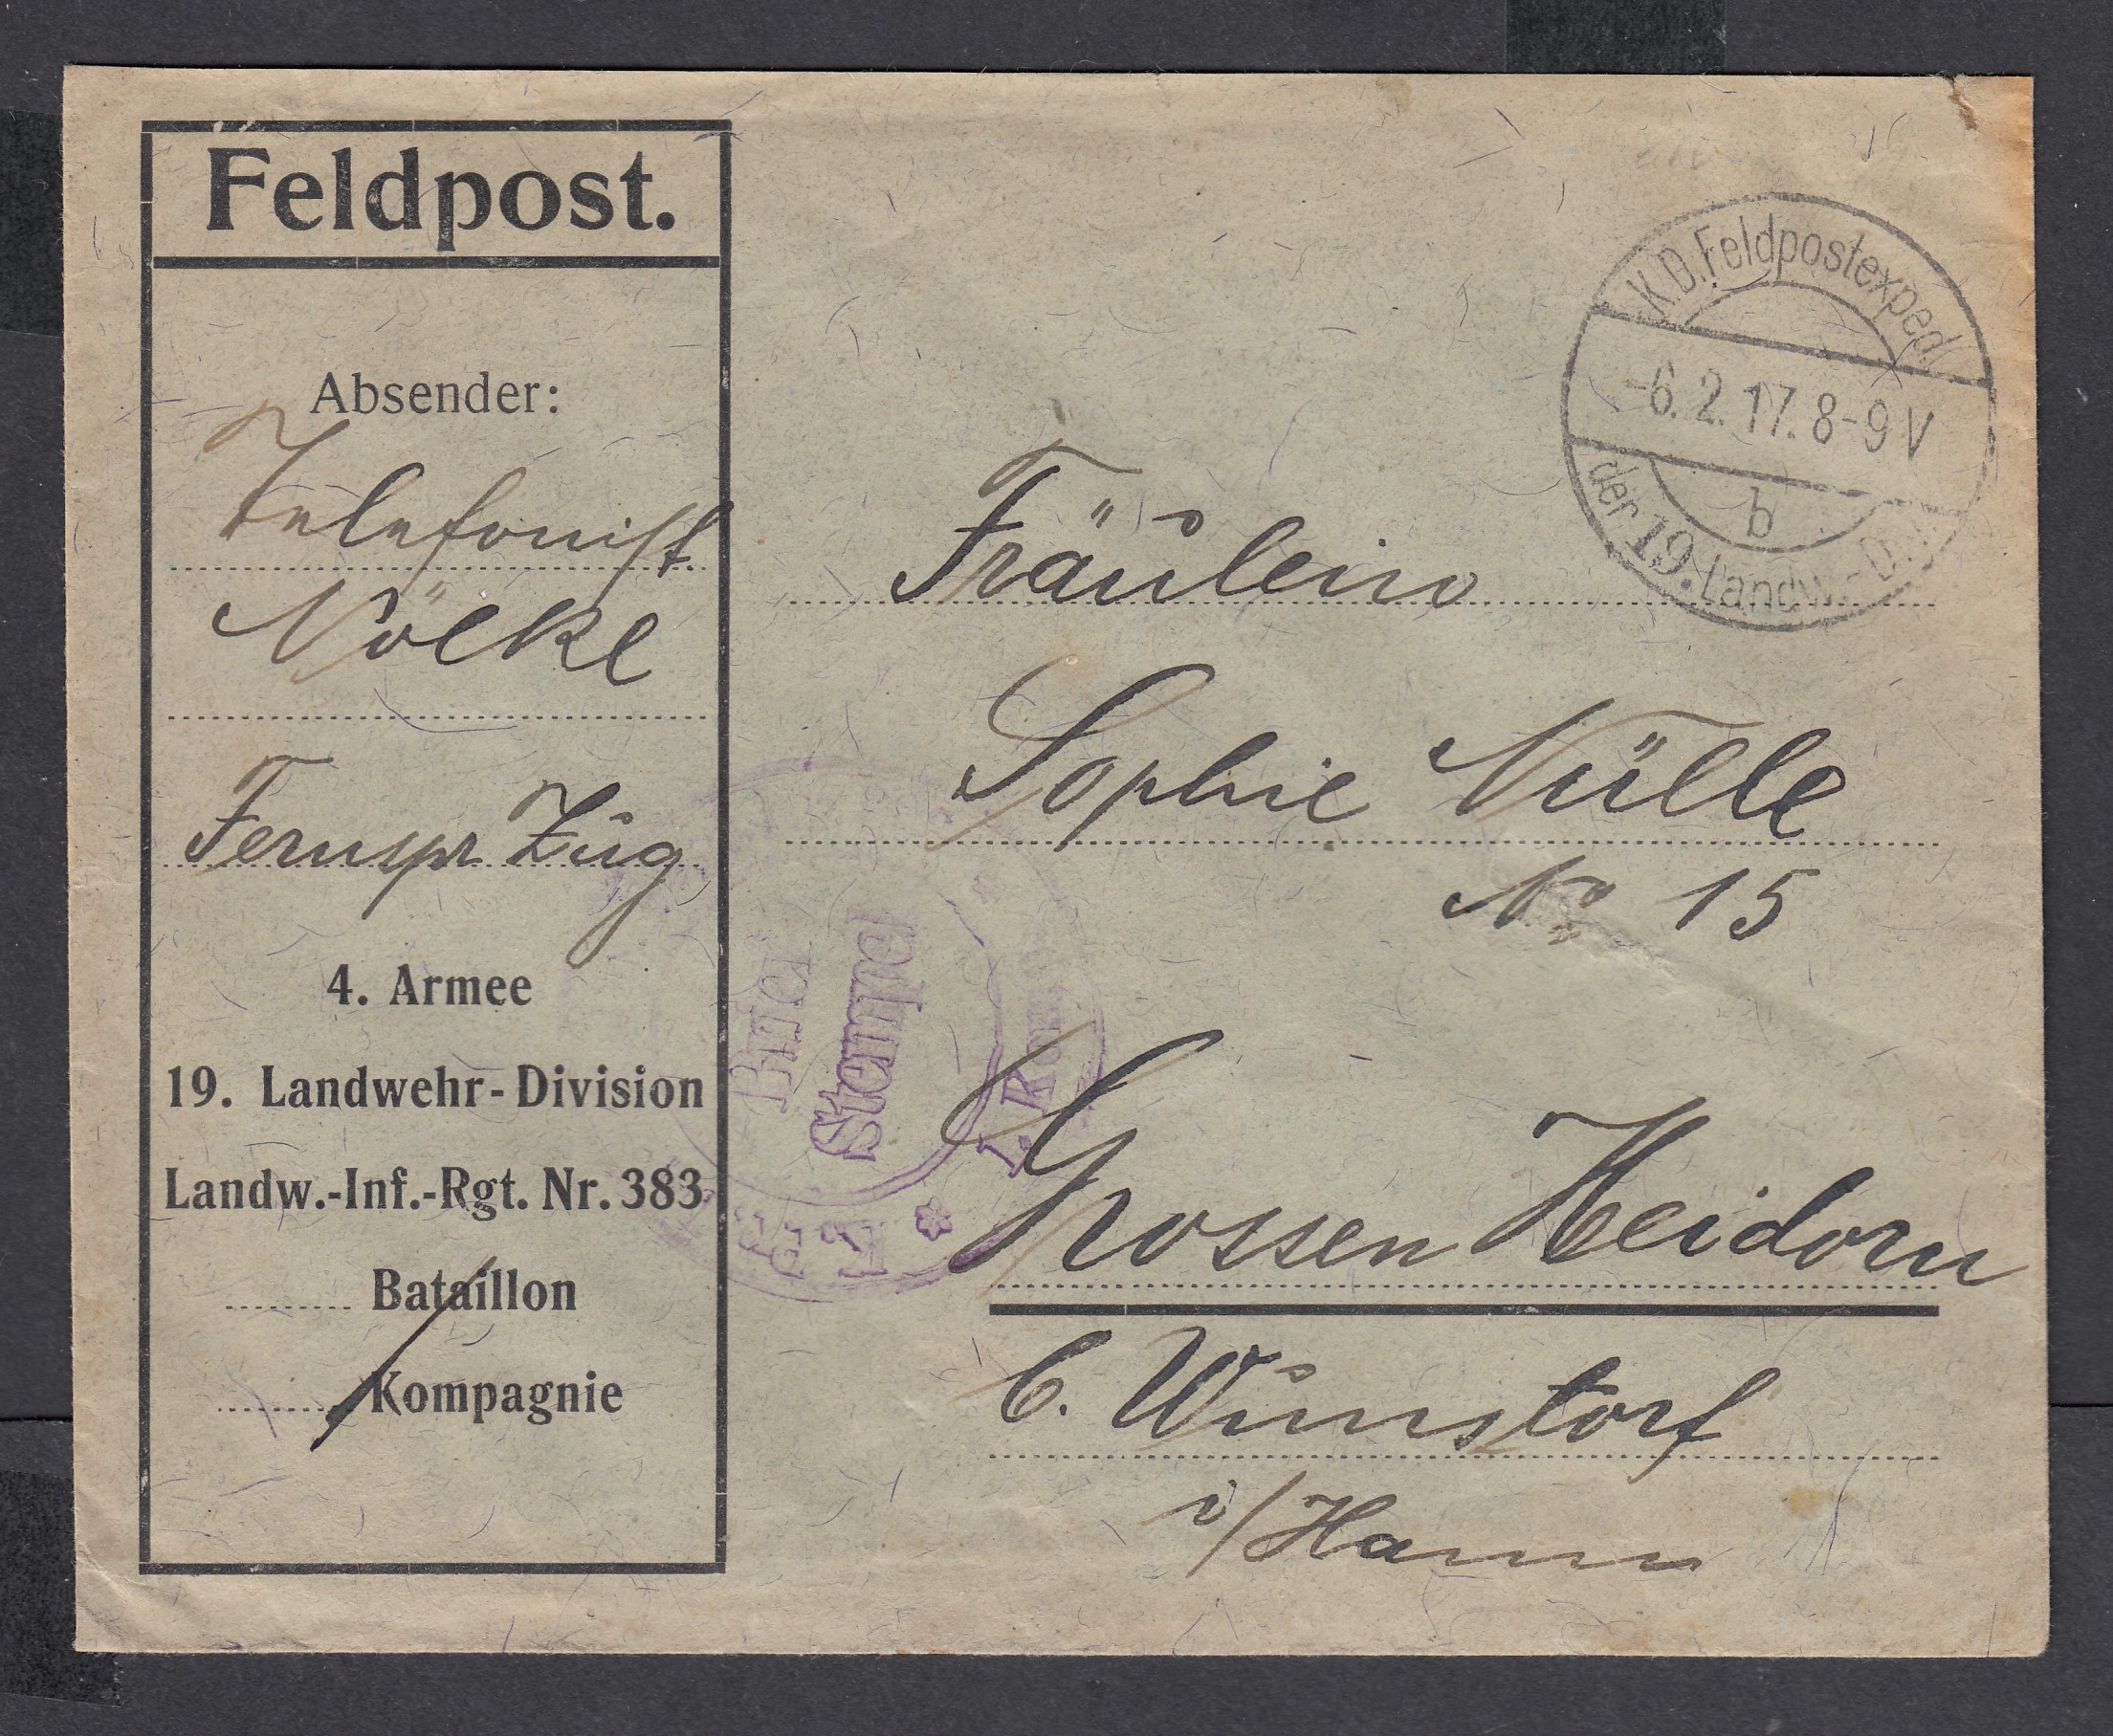 Feldpost.
Absender:
Telefonist
Nölke
Fernspr Zug
4. Armee
19. Landwehr-Division
Landw.-Inf.-Rgt. Nr. 383
Bataillon
Kompagnie
K.D. Feldpostexped.
-6.2.17. 8-9 V
b
der 19. Landw.-D.
Fräulein
Sophie Nülle
No 15
Grossen Heidorn
b. Wunstorf
i/Hann
Brief
Stempel